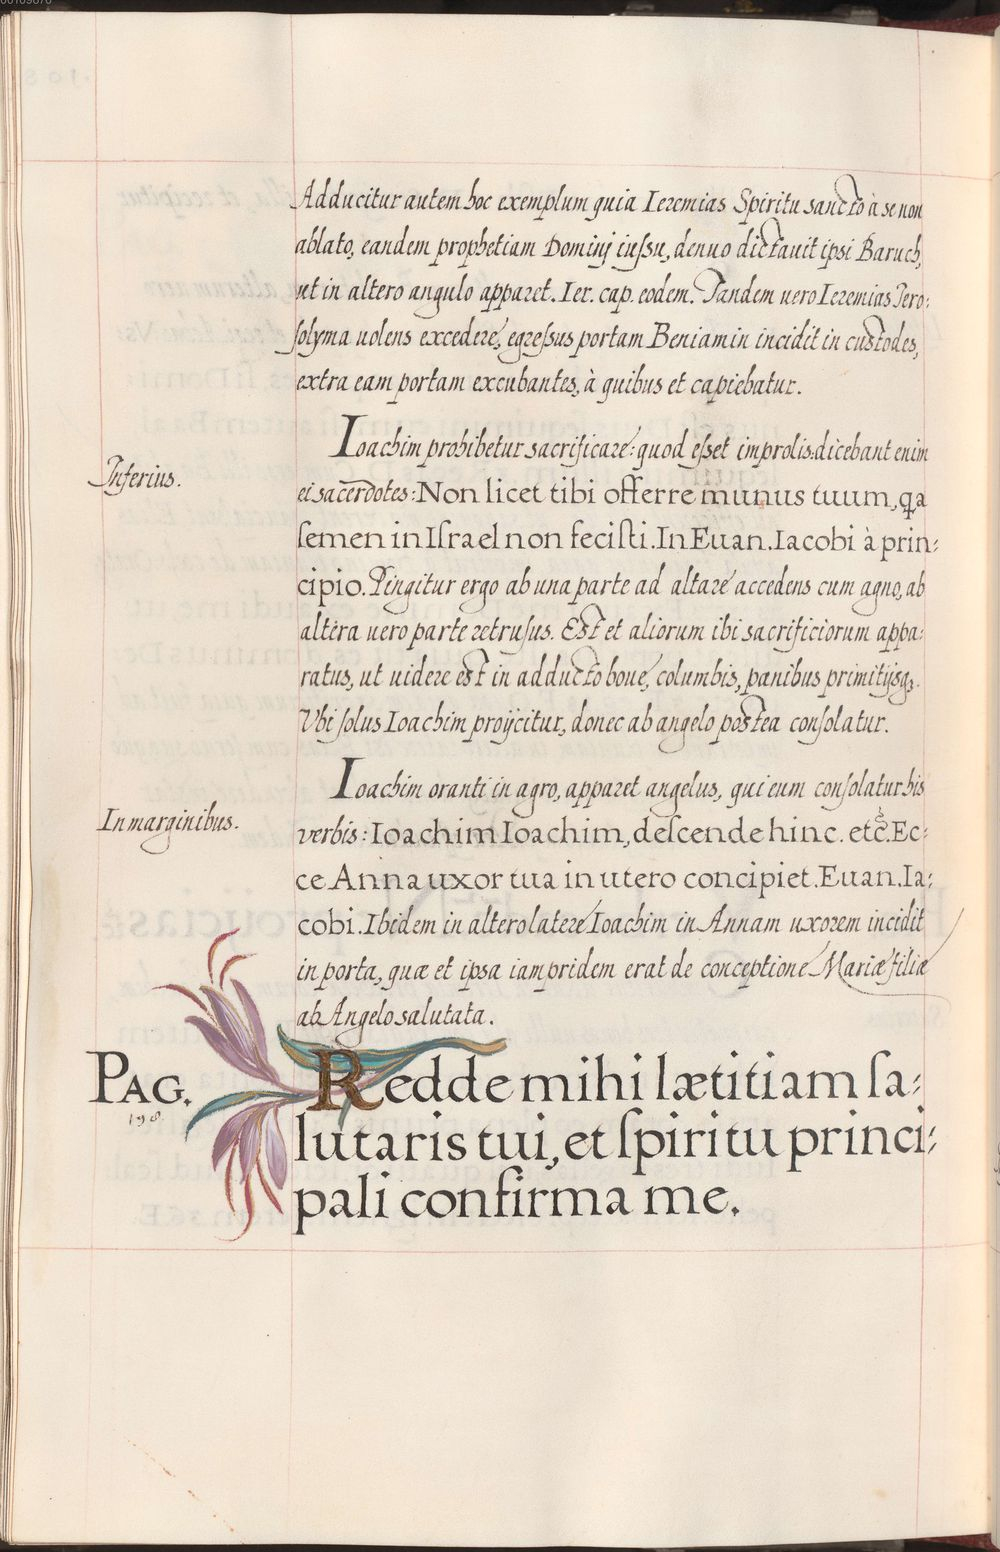 Adducitur autem hoc exemplum quia Ieremias Spiritu sancto à se non
ablato, eandem prophetiam Dominij iussu, denuo dictauit ipsi Baruch,
ut in altero angulo apparet. Ier. cap. eodem. Tandem uero Ieremias Iero:
solyma uolens excedere, egressus portam Beniamin incidit in custodes,
extra eam portam excubantes, à quibus et capiebatur.
Ioachim prohibetur sacrificare: quod esset improlis. dicebant enim
Inferius.
ei sacerdotes: Non licet tibi offerre munus tuum, qa
semen in Israel non fecisti. In Euan. Iacobi à prin:
cipio. Pingitur ergo ab una parte ad altare accedens cum agno, ab
altera uero parte retrusus. Est et aliorum ibi sacrificiorum appa:
ratus, ut uidere est in adducto boue, columbis, panibus primitijsq3.
Vbi solus Ioachim proijcitur, donec ab angelo postea consolatur.
Ioachim oranti in agro, apparet angelus, qui eum consolatur his
In marginibus.
verbis: Ioachim Ioachim, descende hinc. etc. Ec:
ce Anna uxor tua in utero concipiet. Euan. Ia:
cobi. Ibidem in altero latere Ioachim in Annam uxorem incidit
in porta, quæ et ipsa iampridem erat de conceptione Mariæ filiæ
ab Angelo salutata.
PAG.
198.
Redde mihi lætitiam sa:
lutaris tui, et spiritu princi:
pali confirma me.